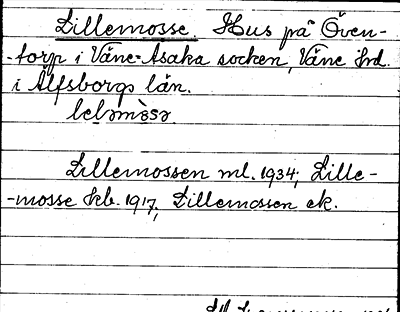 Lillemosse. Hus på Öven-
-torp i Väne-Åsaka socken, Väne hrd.
i Älfsborgs län.
Lillemossen ml. 1934; Lille-
-mosse hkb. 1917; Lillemossen ek.